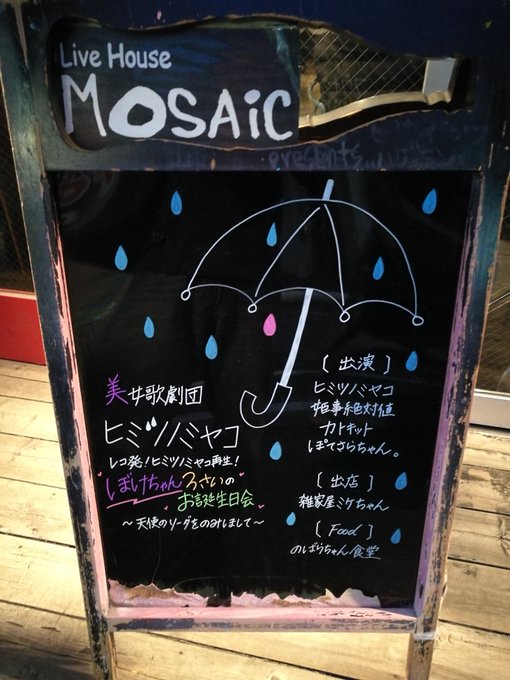 Live House
MOSAiC
presents
美女歌劇団
ヒミツノミヤコ
レコ発！ヒミツノミヤコ再生！
ぽけちゃん3さいの
お誕生日会
～天使のソーダをのみまして～
〔出演〕
ヒミツノミヤコ
姫事絶対値
カトキット
ぽてさらちゃん。
〔出店〕
雑家屋ミケちゃん
〔Food〕
のばらちゃん食堂